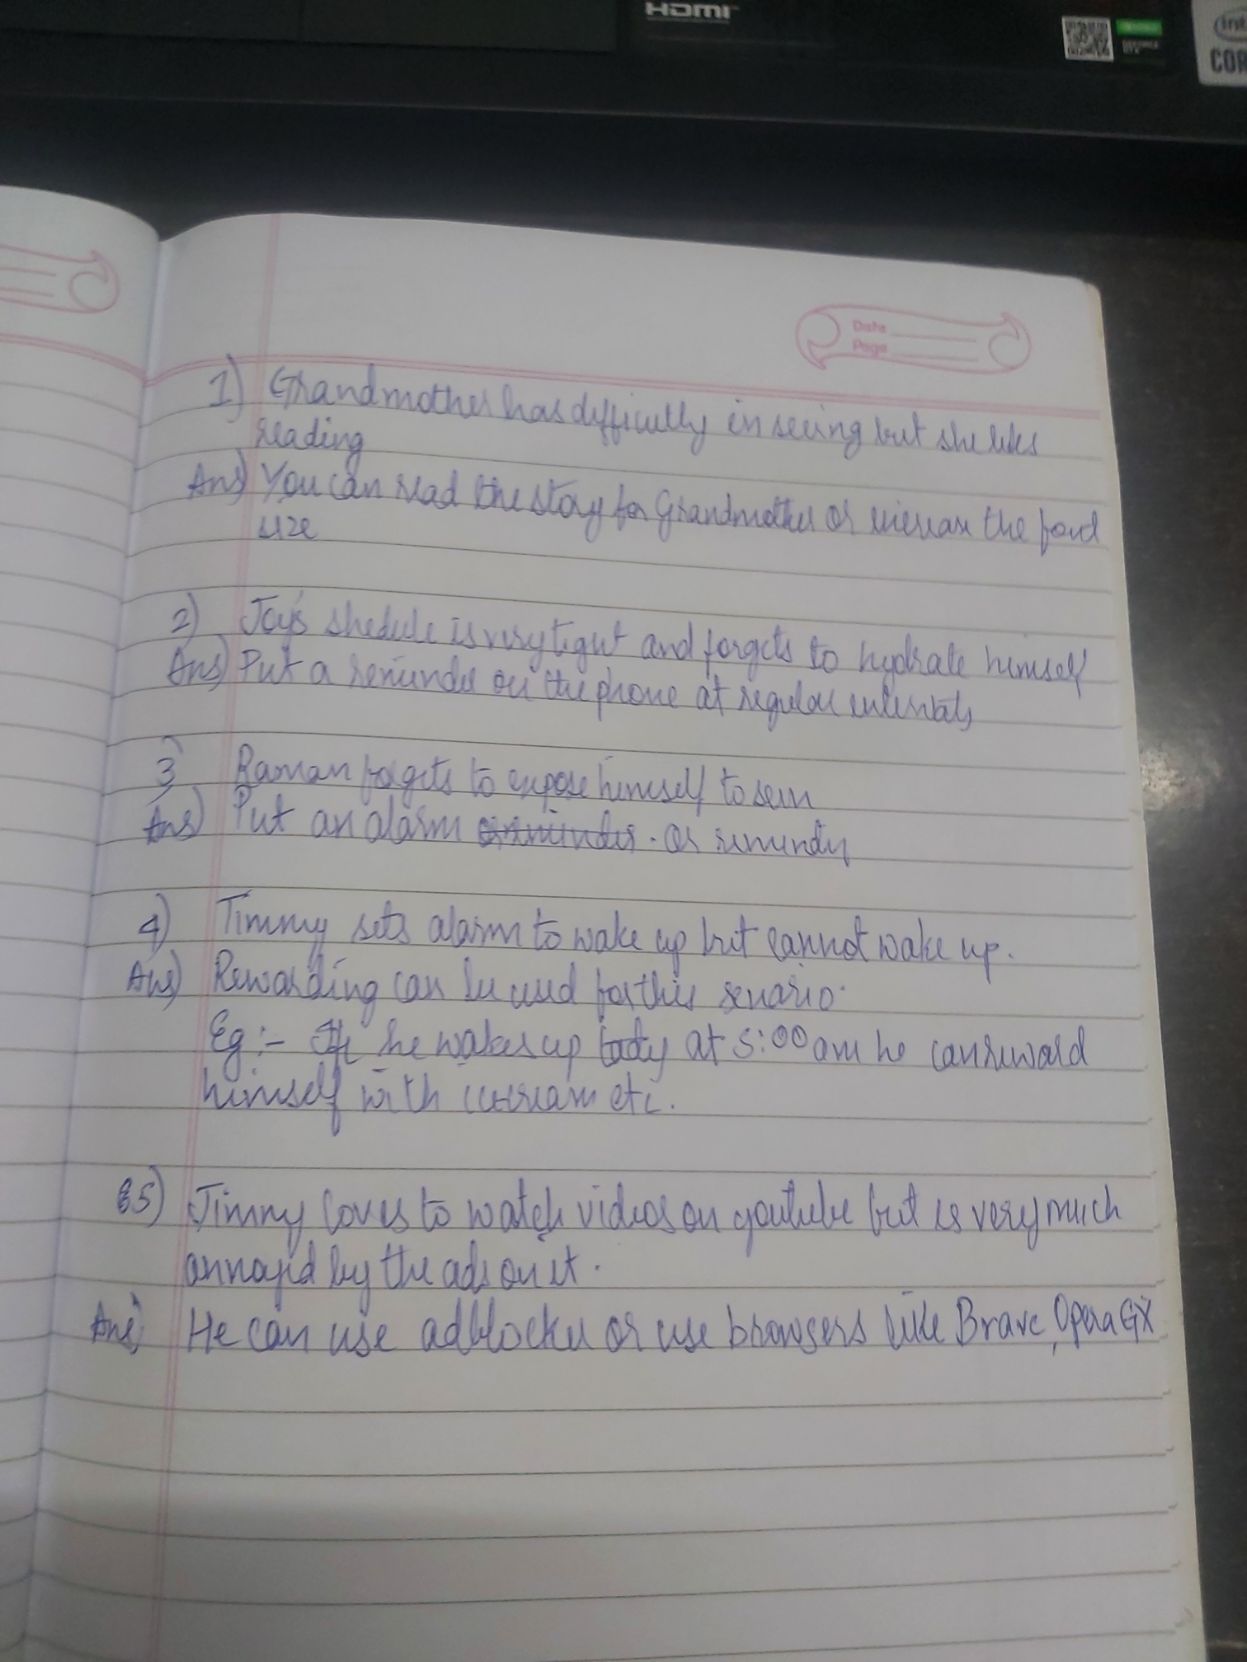 HDMI
CORE
Date
Page
1) Grandmother has difficultly in seeing but she likes
reading
Ans) You can read the story for Grandmother or increase the font
size
2) Joy's shedule is very tigut and forgets to hydrate himself
Ans) Put a reminder on the phone at regular intervals
3) Raman forgets to expose himself to sun
Ans) Put an alarm or reminder
4) Timmy sets alarm to wake up but cannot wake up.
Ans) Rewarding can be used for this senario.
Eg :- If he wakes up at 5:00 am he can reward
himself with icecream etc.
5) Jimmy loves to watch videos on youtube but is very much
annoyed by the ads on it.
Ans) He can use adblocker or use browsers like Brave, Opera GX